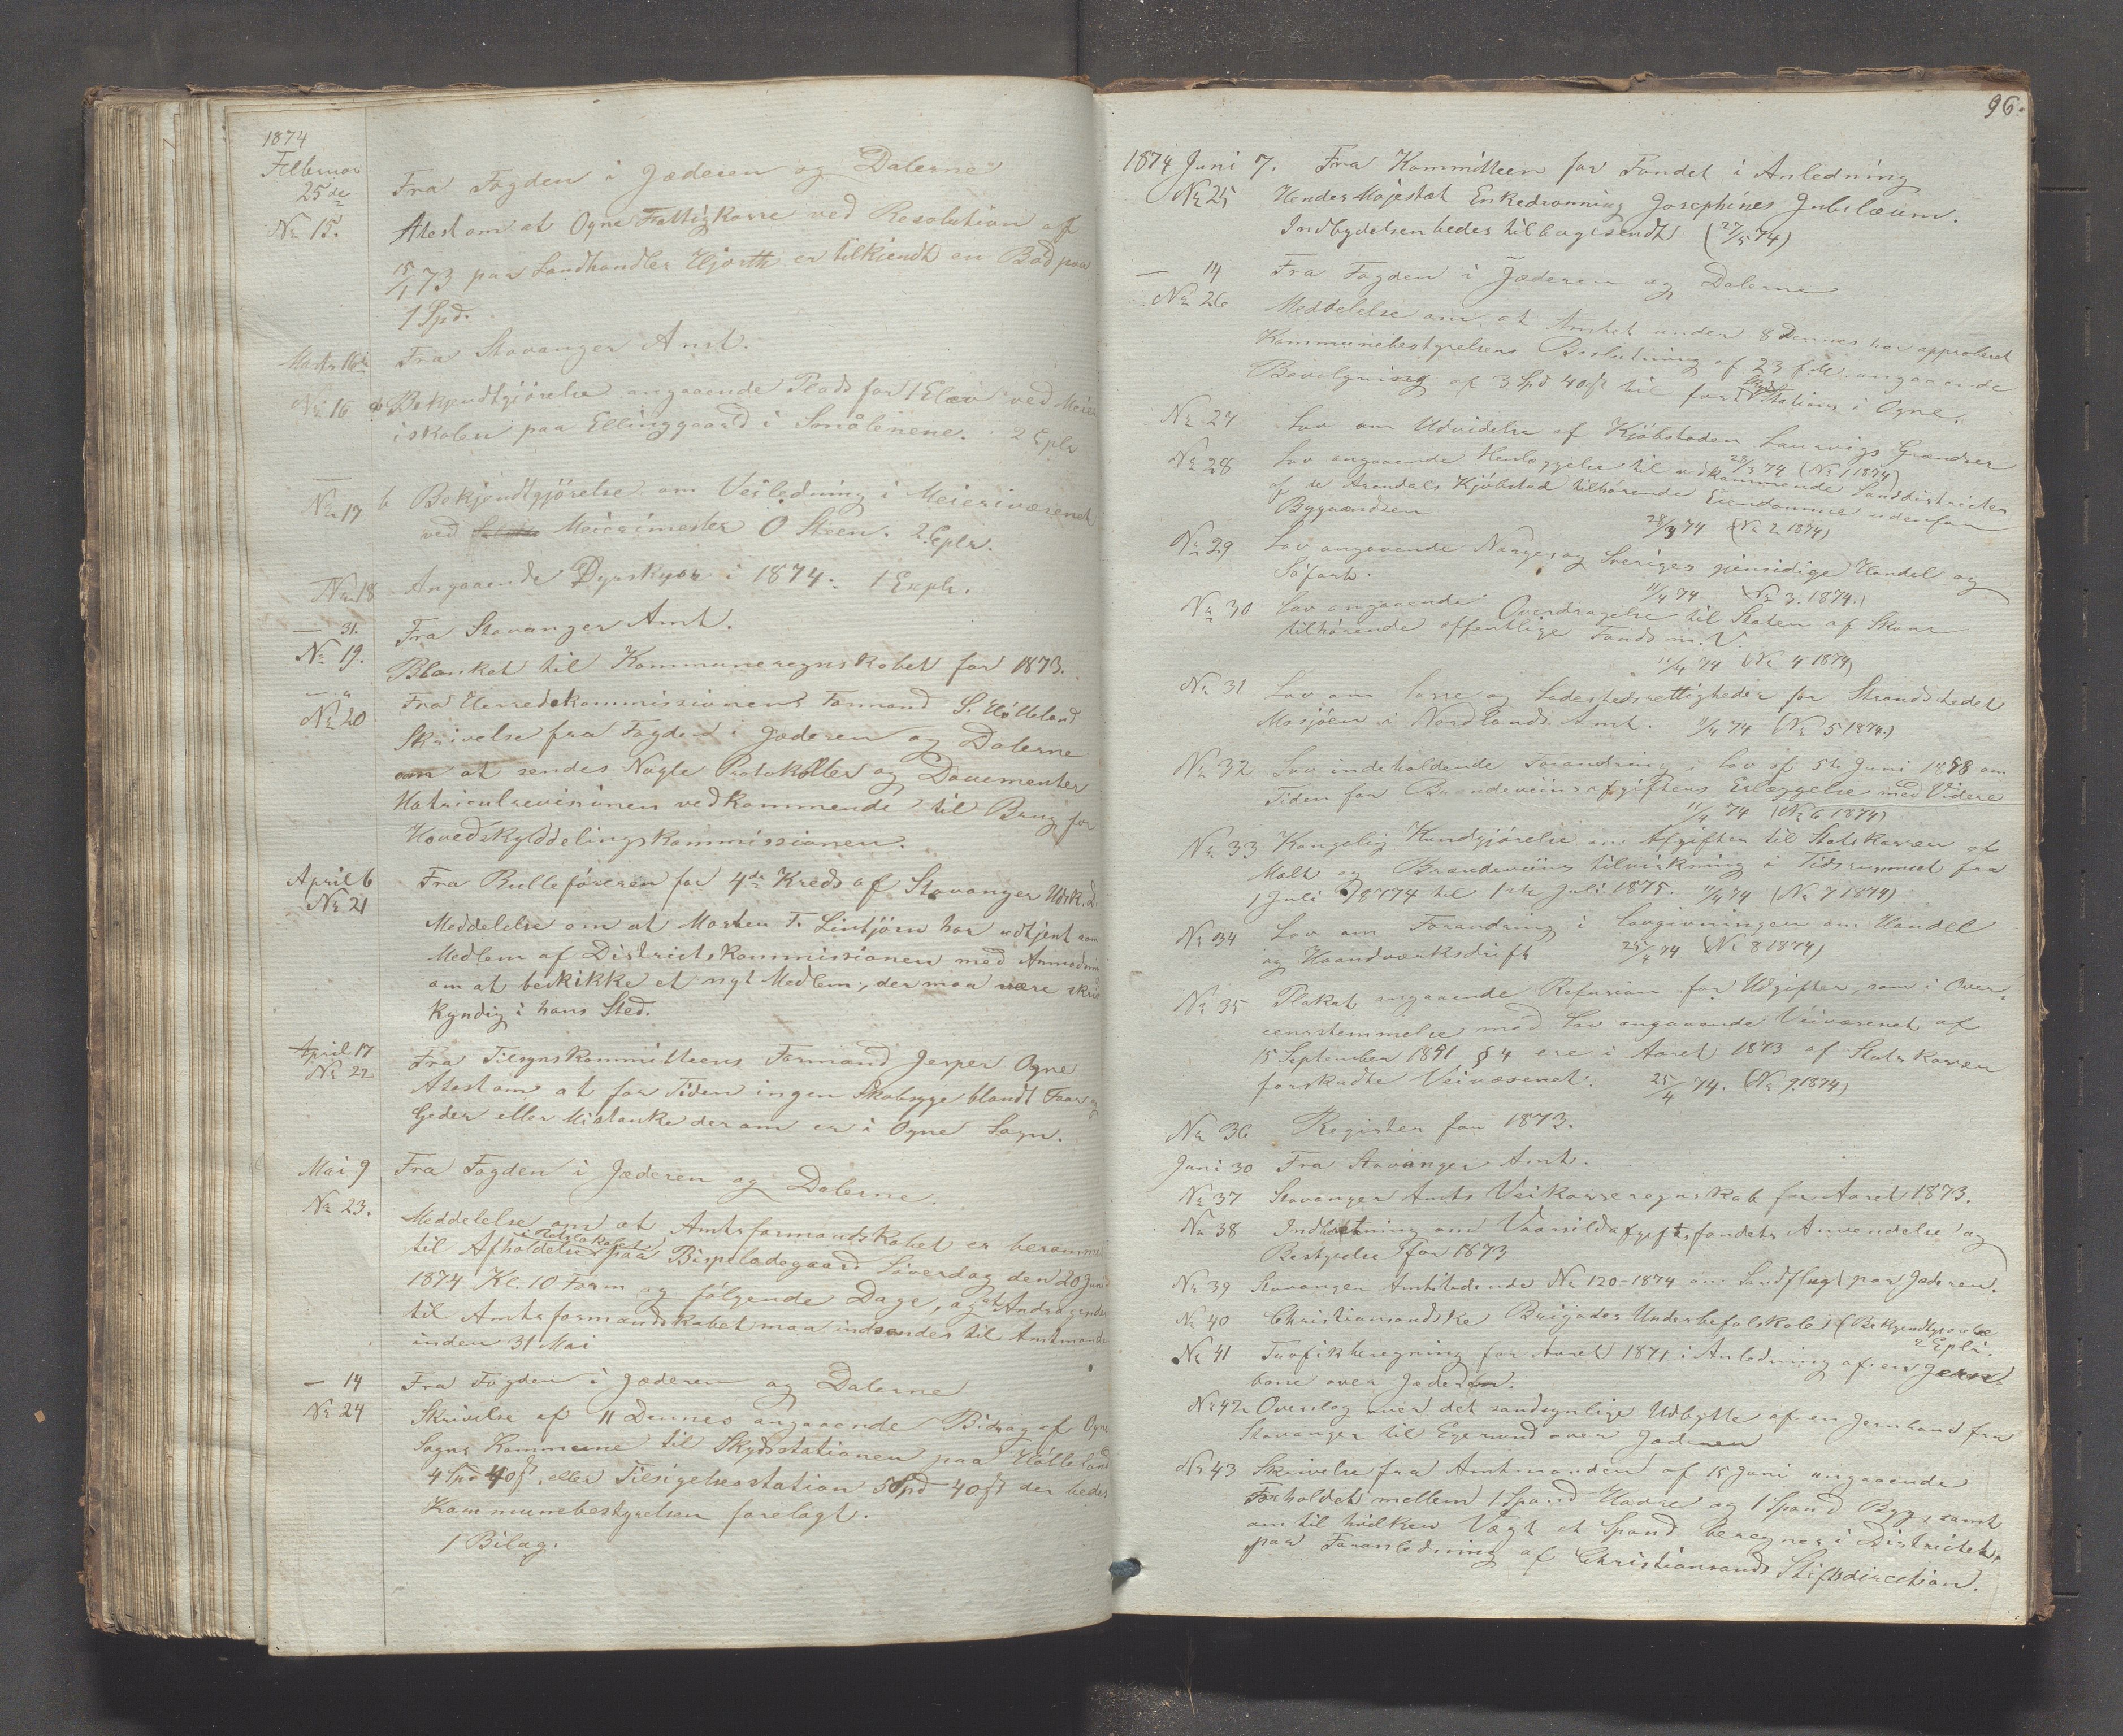 1874
Februar
25de
Fra Fogden i Jæderen og Dalerne
No 15.
Atest om at Ogne Fattigkasse ved Resolution af
15/1 73 paa Landhandler Hjorth er tilkjendt en Bod paa
1 Spd.
Marts 16de
Fra Stavanger Amt.
No 16 a Bekjendtgjörelse angaaende Plads for 1 Elev ved Meier
iskolen paa Ellinggaard i Smålenene. 2 Eplr
No 17 b Bekjendtgjörelse om Veiledning i Meierivæsenet
ved Meierimester O Steen. 2 Eplr.
No 18 Angaaende Dyrskuer i 1874. 1 Explr.
— 31. Fra Stavanger Amt.
No 19. Blanket til Kommuneregnskabet for 1873.
— " Fra Herredskommissionens Formand S. Hölleland
No 20
Skrivelse fra Fogden i Jæderen og Dalerne
om at sendes Nogle Protokoller og Documenter
Matriculrevisionen vedkommende til Brug for
Hovedskylddelingskommissionen.
April 6 Fra Rulleföreren for 4de Kreds af Stavanger Udsk. D.
No 21
Meddelelse om at Morten T. Lintjörn har udtjent som
Medlem af Districtskommissionen med Anmodning
om at beskikke et nyt Medlem, der maa være skriv
kyndig i hans Sted.
April 17 Fra Tilsynskommitteens Formand Jesper Ogne
No 22
Atest om at for Tiden ingen Skabsyge blandt Faar og
Geder eller Mistanke derom er i Ogne Sogn.
Mai 9 Fra Fogden i Jæderen og Dalerne.
No 23.
Meddelelse om at Amtsformandskabet er berammet
til Afholdelse i Retslokalet paa Bispeladegaard Löverdag den 20 Juni
1874 Kl. 10 Form og fölgende Dage, og at Andragender
til Amtsformandskabet maa indsendes til Amtmanden
inden 31 Mai
— 14 Fra Fogden i Jæderen og Dalerne
No 24
Skrivelse af 11 Dennes angaaende Bidrag af Ogne
Sogns Kommune til Skydsstationen paa Hölleland
4 Spd 40 ß, eller Tilsigelsesstation 5 Spd 40 ß der bedes
Kommunebestyrelsen forelagt.
1 Bilag.
96.
1874 Juni 7. Fra Kommitteen for Fondet i Anledning
No 25 Hendes Majestæt Enkedronning Josephines Jubelæum.
Indbydelsen bedes tilbagesendt (27/5 74)
— 14 Fra Fogden i Jæderen og Dalerne
No 26 Meddelelse om at Amtet under 8 Dennes har approberet
Kommunebestyrelsens Beslutning af 23 f.M. angaaende
Bevilgning af 3 Spd 40 ß til fast Skydsstation i Ogne.
No 27 Lov om Udvidelse af Kjöbstaden Laurvigs Grændser
28/3 74 (No 1 1874)
No 28 Lov angaaende Henlæggelse til vedkommende Landdistricter
af de Arendals Kjöbstad tilhörende Eiendomme udenfor
Bygrændsen 28/3 74 (No 2 1874)
No 29 Lov angaaende Norges og Sveriges gjensidige Handel og
Söfart. 11/4 74 (No 3. 1874.)
No 30 Lov angaaende Overdragelse til Staten af Skove
tilhörende offentlige Fonds m. V.
11/4 74 (No 4 1874)
No 31 Lov om Losse og Ladestedsrettigheder for Strandstedet
Mosjöen i Nordlands Amt. 11/4 74 (No 5 1874.)
No 32 Lov indeholdende Forandring i Lov af 5te Juni 1858 om
Tiden for Brændeviinsafgiftens Erlæggelse med Videre
11/4 74 (No 6 1874)
No 33 Kongelig Kundgjörelse om Afgiften til Statskassen af
Malt og Brændeviins tilvirkning i Tidsrummet fra
1 Juli 18774 til 1ste Juli 1875. 11/4 74 (No 7 1874)
No 34 Lov om Forandring i Lovgivningen om Handel
og Haandværksdrift 25/4 74 (No 8 1874)
No 35 Plakat angaaende Refusion for Udgifter, som i Over-
eensstemmelse med Lov angaaende Veivæsenet af
15 September 1851 § 4 ere i Aaret 1873 af Statskassen
forskudte Veivæsenet. 25/4 74. (No 9. 1874)
No 36 Register for 1873.
Juni 30 Fra Stavanger Amt.
No 37 Stavanger Amts Veikasseregnskab for Aaret 1873.
No 38 Indberetning om Vaarsildafgiftsfondets Anvendelse og
Bestyrelse for 1873
No 39 Stavanger Amtstidende No 120-1874 om Sandflugt paa Jæderen.
No 40 Christiansandske Brigades Underbefalskole (Bekjendtgjörelse
2 Eplr.
No 41 Trafikberegning for Aaret 1871 i Anledning af en Jern
bane over Jæderen.
No 42 Overslag over det sandsynlige Udbytte af en Jernband fra
Stavanger til Egersund over Jæderen
No 43 Skrivelse fra Amtmanden af 15 Juni angaaende
Forholdet mellem 1 Spand Havre og 1 Spand Byg, samt
om til hvilken Vægt et Spand beregnes i Districtet,
paa Foranledning af Christiansands Stiftsdirection.